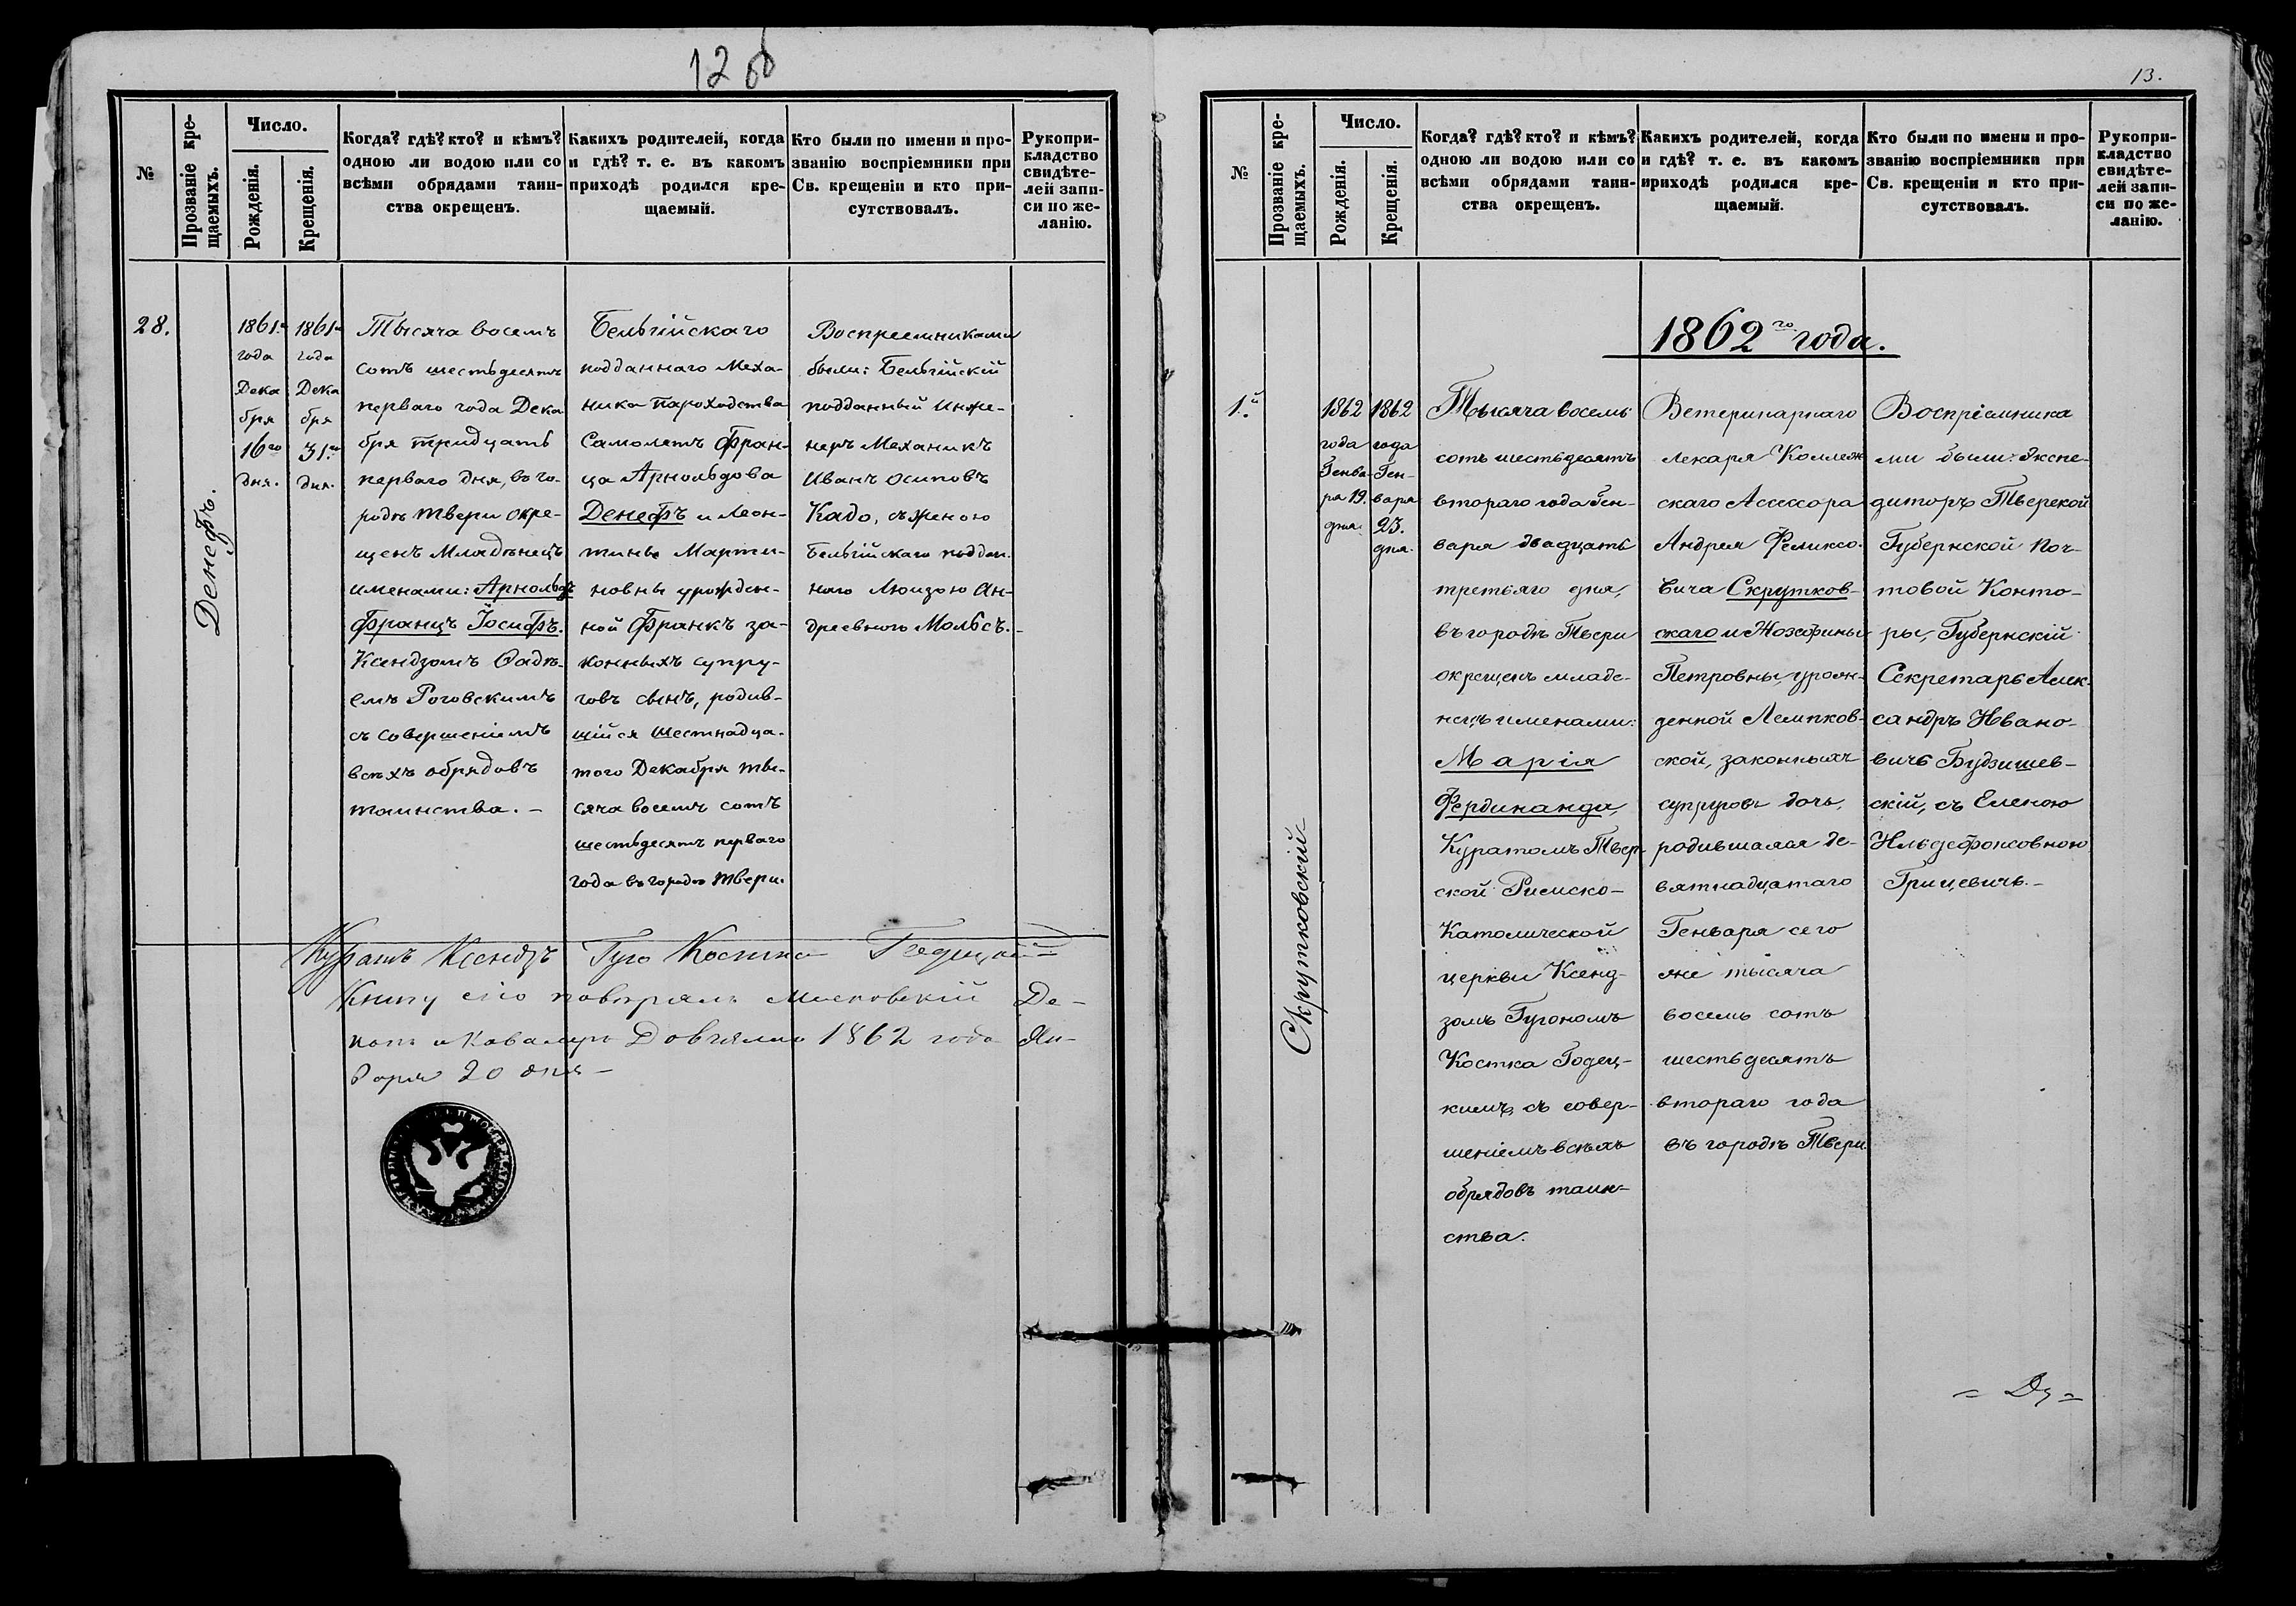 12 об
№
Прозваніе кре-
щаемыхъ.
Число.
Рожденія.
Крещенія.
Когда? гдѣ? кто? и кѣмъ?
одною ли водою или со
всѣми обрядами таин-
ства окрещенъ.
Какихъ родителей, когда
и гдѣ? т. е. въ какомъ
приходѣ родился кре-
щаемый.
Кто были по имени и про-
званію воспріемники при
Св. крещеніи и кто при-
сутствовалъ.
Рукопри-
кладство
свидѣте-
лей запи-
си по же-
ланію.
28.
Денефъ.
1861го
года
Дека
бря
16го
дня.
1861го
года
Дека
бря
31го
дня.
Тысяча восемъ
сотъ шестьдесятъ
перваго года Дека
бря тридцать
перваго дня, въ го-
родѣ Твери окре-
щенъ Младѣнецъ
именами: Арнольдъ
Францъ Іосифъ.
Ксендзомъ Фадѣ-
емъ Роговскимъ
съ совершеніемъ
всѣхъ обрядовъ
таинства. –
Бельгійскаго
подданнаго Меха-
ника Пароходства
Самолетъ Фран-
ца Арнольдова
Денефъ и Леон-
тины Марти-
новны урожден-
ной Франкъ за-
конныхъ супру-
говъ сынъ, родив-
шійся шестнадца-
того Декабря ты-
сяча восемъ сотъ
шестьдесятъ перваго
года въ городѣ Твери.
Воспреемниками
были: Бельгійскій
подданный Инже-
неръ Механикъ
Иванъ Осиповъ
Кадо, съ женою
Бельгійскаго поддан-
наго Люизою Ан-
древною Мольсъ. –
Куратъ Ксендзъ Гуго Костка Годецкій
Книгу сію повѣрялъ Московскій Де-
канъ и Кавалеръ Довгялло 1862 года Ян-
варя 20 дня –
13.
№
Прозваніе кре-
щаемыхъ.
Число.
Рожденія.
Крещенія.
Когда? гдѣ? кто? и кѣмъ?
одною ли водою или со
всѣми обрядами таин-
ства окрещенъ.
Какихъ родителей, когда
и гдѣ? т. е. въ какомъ
приходѣ родился кре-
щаемый.
Кто были по имени и про-
званію воспріемники при
Св. крещеніи и кто при-
сутствовалъ.
Рукопри-
кладство
свидѣте-
лей запи-
си по же-
ланію.
1862го года.
1.й
Скрутковскій
1862
года
Генва-
ря 19.
дня.
1862
года
Ген-
варя
23.
дня.
Тысяча восемь
сотъ шестьдесятъ
втораго года Ген-
варя двадцать
третьяго дня,
въ городѣ Твери
окрещенъ младе-
нецъ именами:
Марія
Фердинанда,
Куратомъ Твер-
ской Римско-
Католической
церкви Ксенд-
зомъ Гугономъ
Костка Годец-
кимъ, съ совер-
шеніемъ всѣхъ
обрядовъ таин-
ства.
Ветеринарнаго
лекаря Коллеж
скаго Асессора
Андрея Феликсо-
вича Скрутков-
скаго и Жозефины
Петровны, урож-
денной Лемпков-
ской, законныхъ
супруговъ дочь,
родившаяся де-
вятнадцатаго
Генваря сего
же тысяча
восемь сотъ
шестьдесятъ
втораго года
въ городѣ Твери
Воспріемника
ми были: Экспе-
диторъ Тверской
Губернской Поч-
товой Конто-
ры, Губернскій
Секретарь Алек-
сандръ Ивано-
вичъ Будзишев-
скій, съ Еленою
Ильдефонсовною
Грицевичъ. –